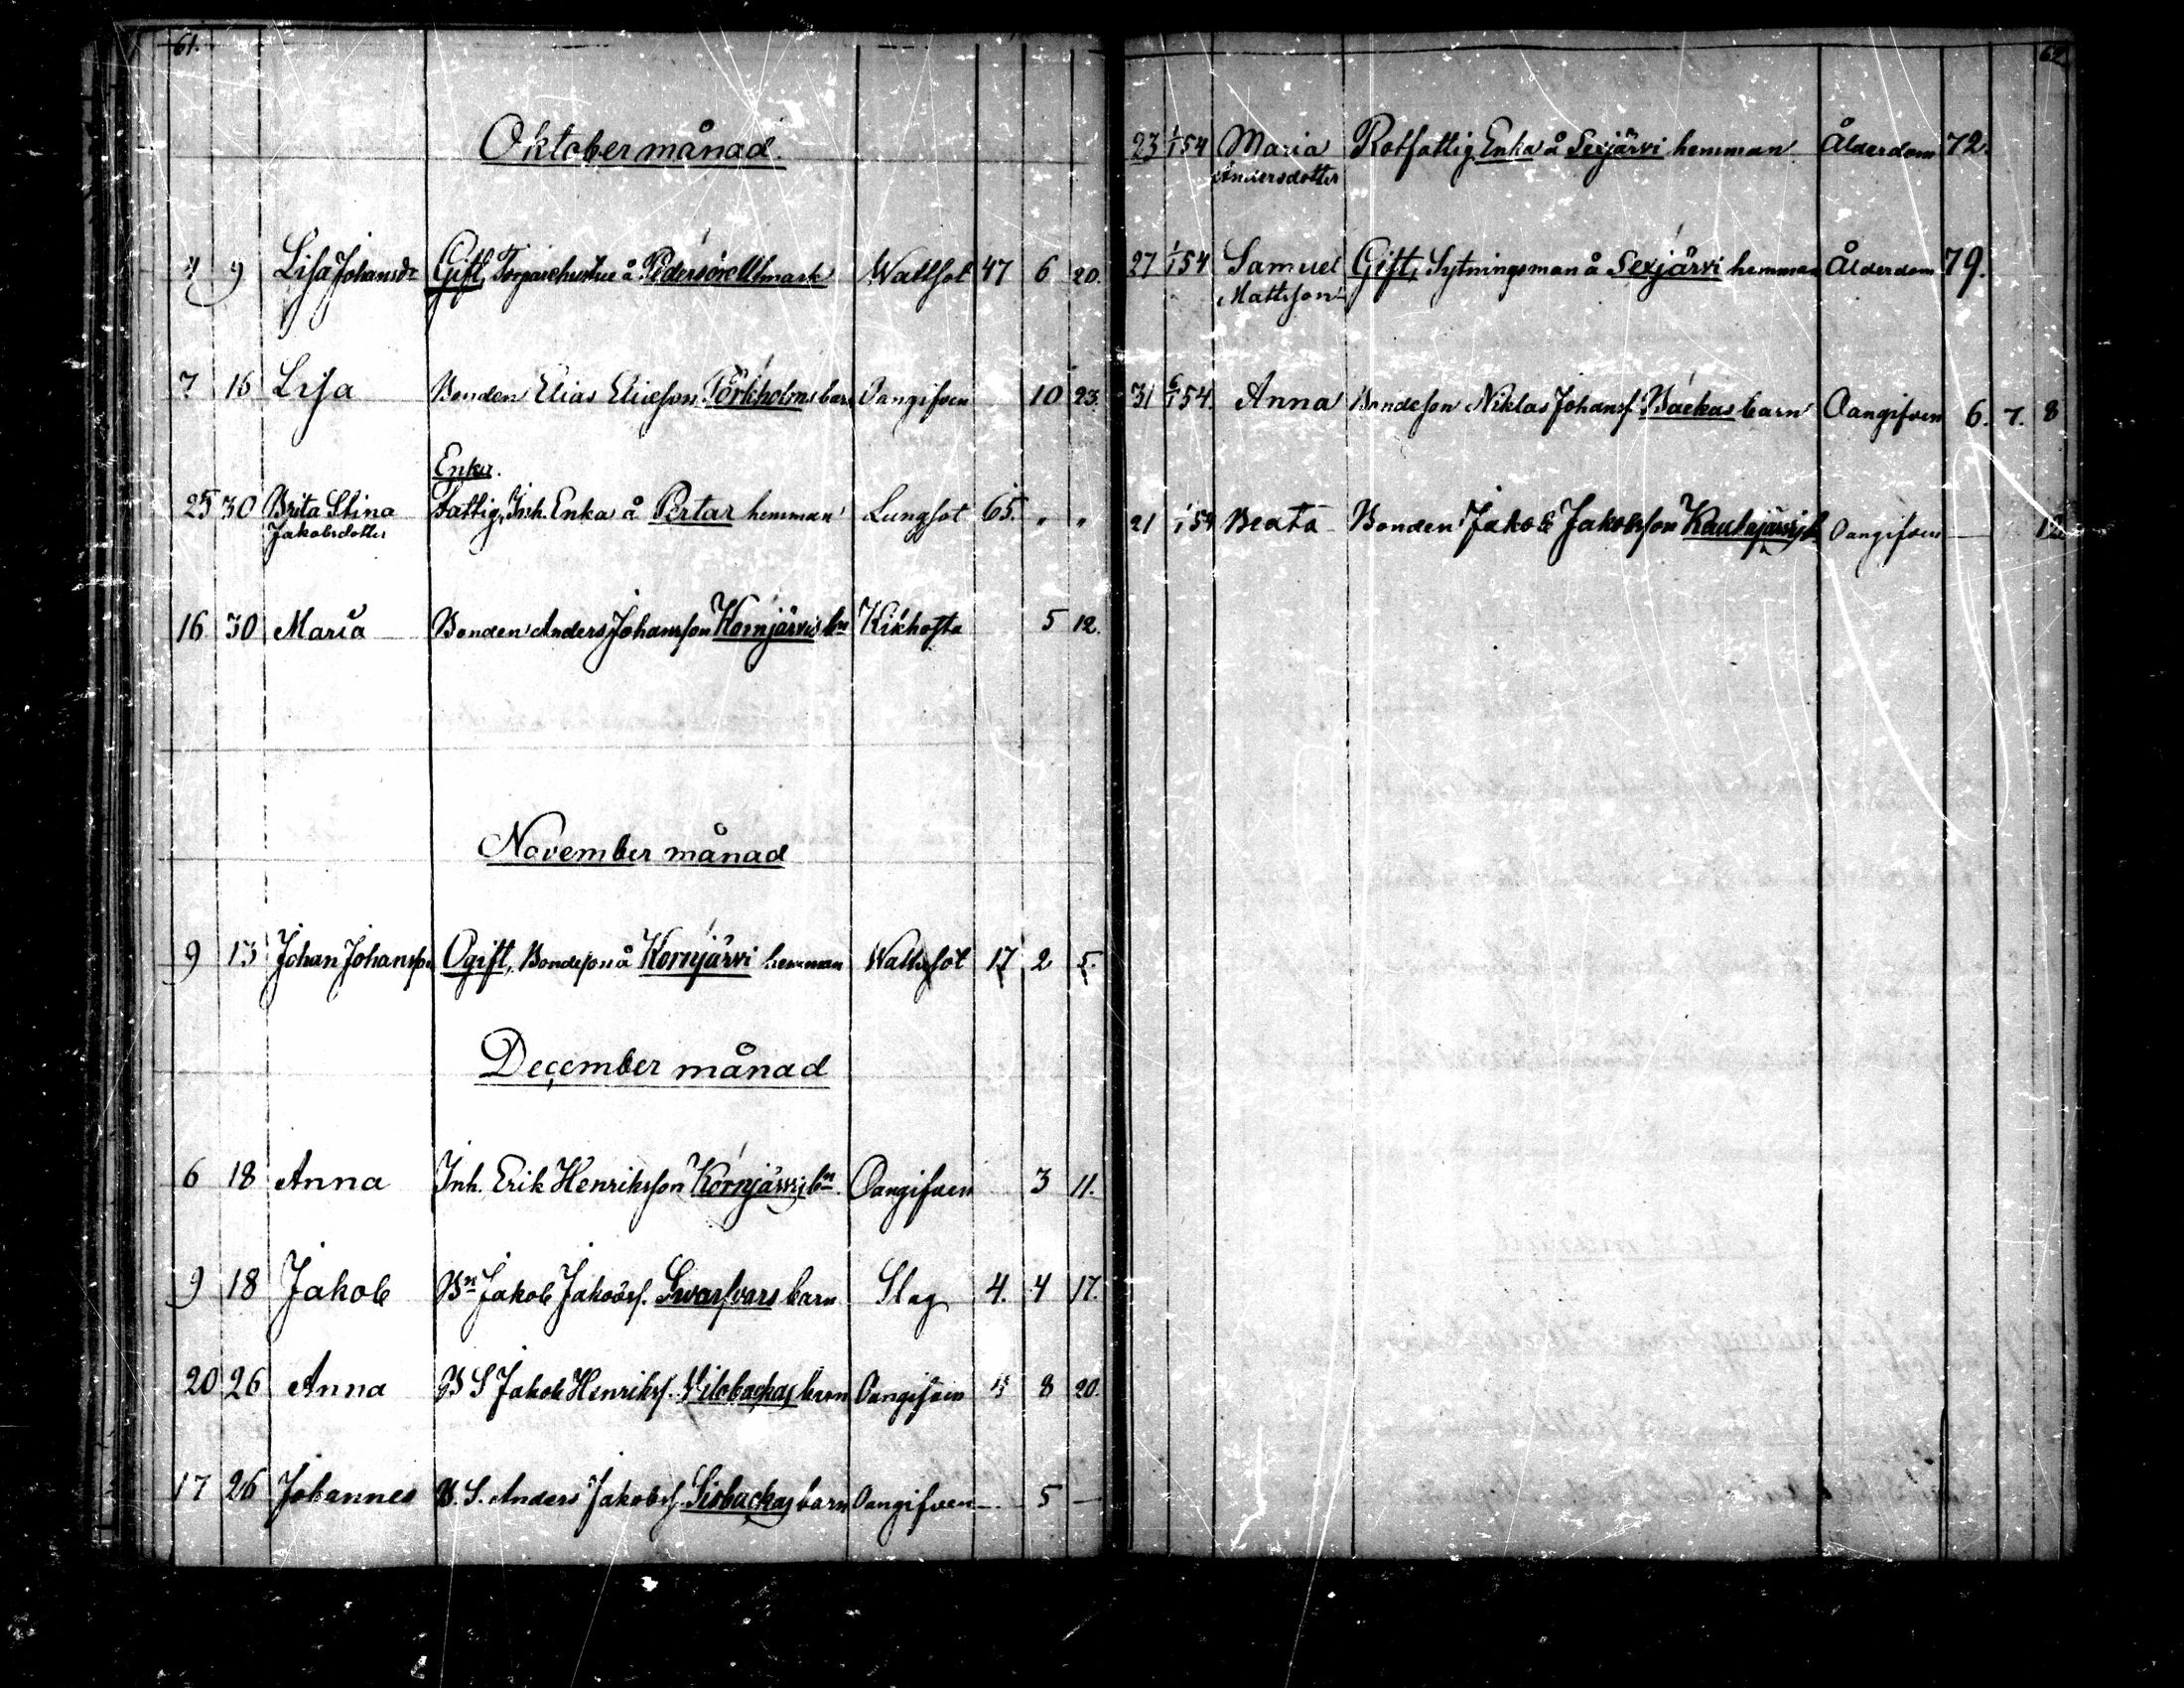 61.
Oktober månad.
4 9 Lisa Johansdr Gift, Torparehustru å Pedersöre Utmark Wattsot 47 6 20.
7 16 Lisa Bonden Elias Eliesson Pörkholms barn Oangifven 10 23.
Enka.
25 30 Brita Stina Fattig, Inh. Enka å Pertar hemman Lungsot 65. " "
Jakobsdotter
16 30 Maria Bonden Anders Johansson Kornjärvis bn Kikhosta 5 12.
November månad
9 13 Johan Johansson Ogift, Bondeson å Kornjärvi hemman Wattusot 17 2 5.
December månad
6 18 Anna Inh. Erik Henriksson Kornjärvis bn Oangifven 3 11.
9 18 Jakob Bn Jakob Jakobss. Svarfvars barn Slag 4. 4 17.
20 26 Anna B S Jakob Henrikss. barn Oangifven 4 8 20.
17 26 Johannes B. S. Anders Jakobss. Sisbackas barn Oangifven — 5 —
62.
23 1/1 54 Maria Rotfattig Enka å Sexjärvi hemman Ålderdom 72.
Andersdotter
27 1/1 54 Samuel Gift, Sytningsman å Sexjärvi hemman Ålderdom 79.
Mattsson
31 6/1 54. Anna Bondeson Niklas Johanss. Backas barn Oangifven 6. 7. 8
21 1/1 54 Beata Bonden Jakob Jakobsson Kaulajärvis b Oangifven — 12